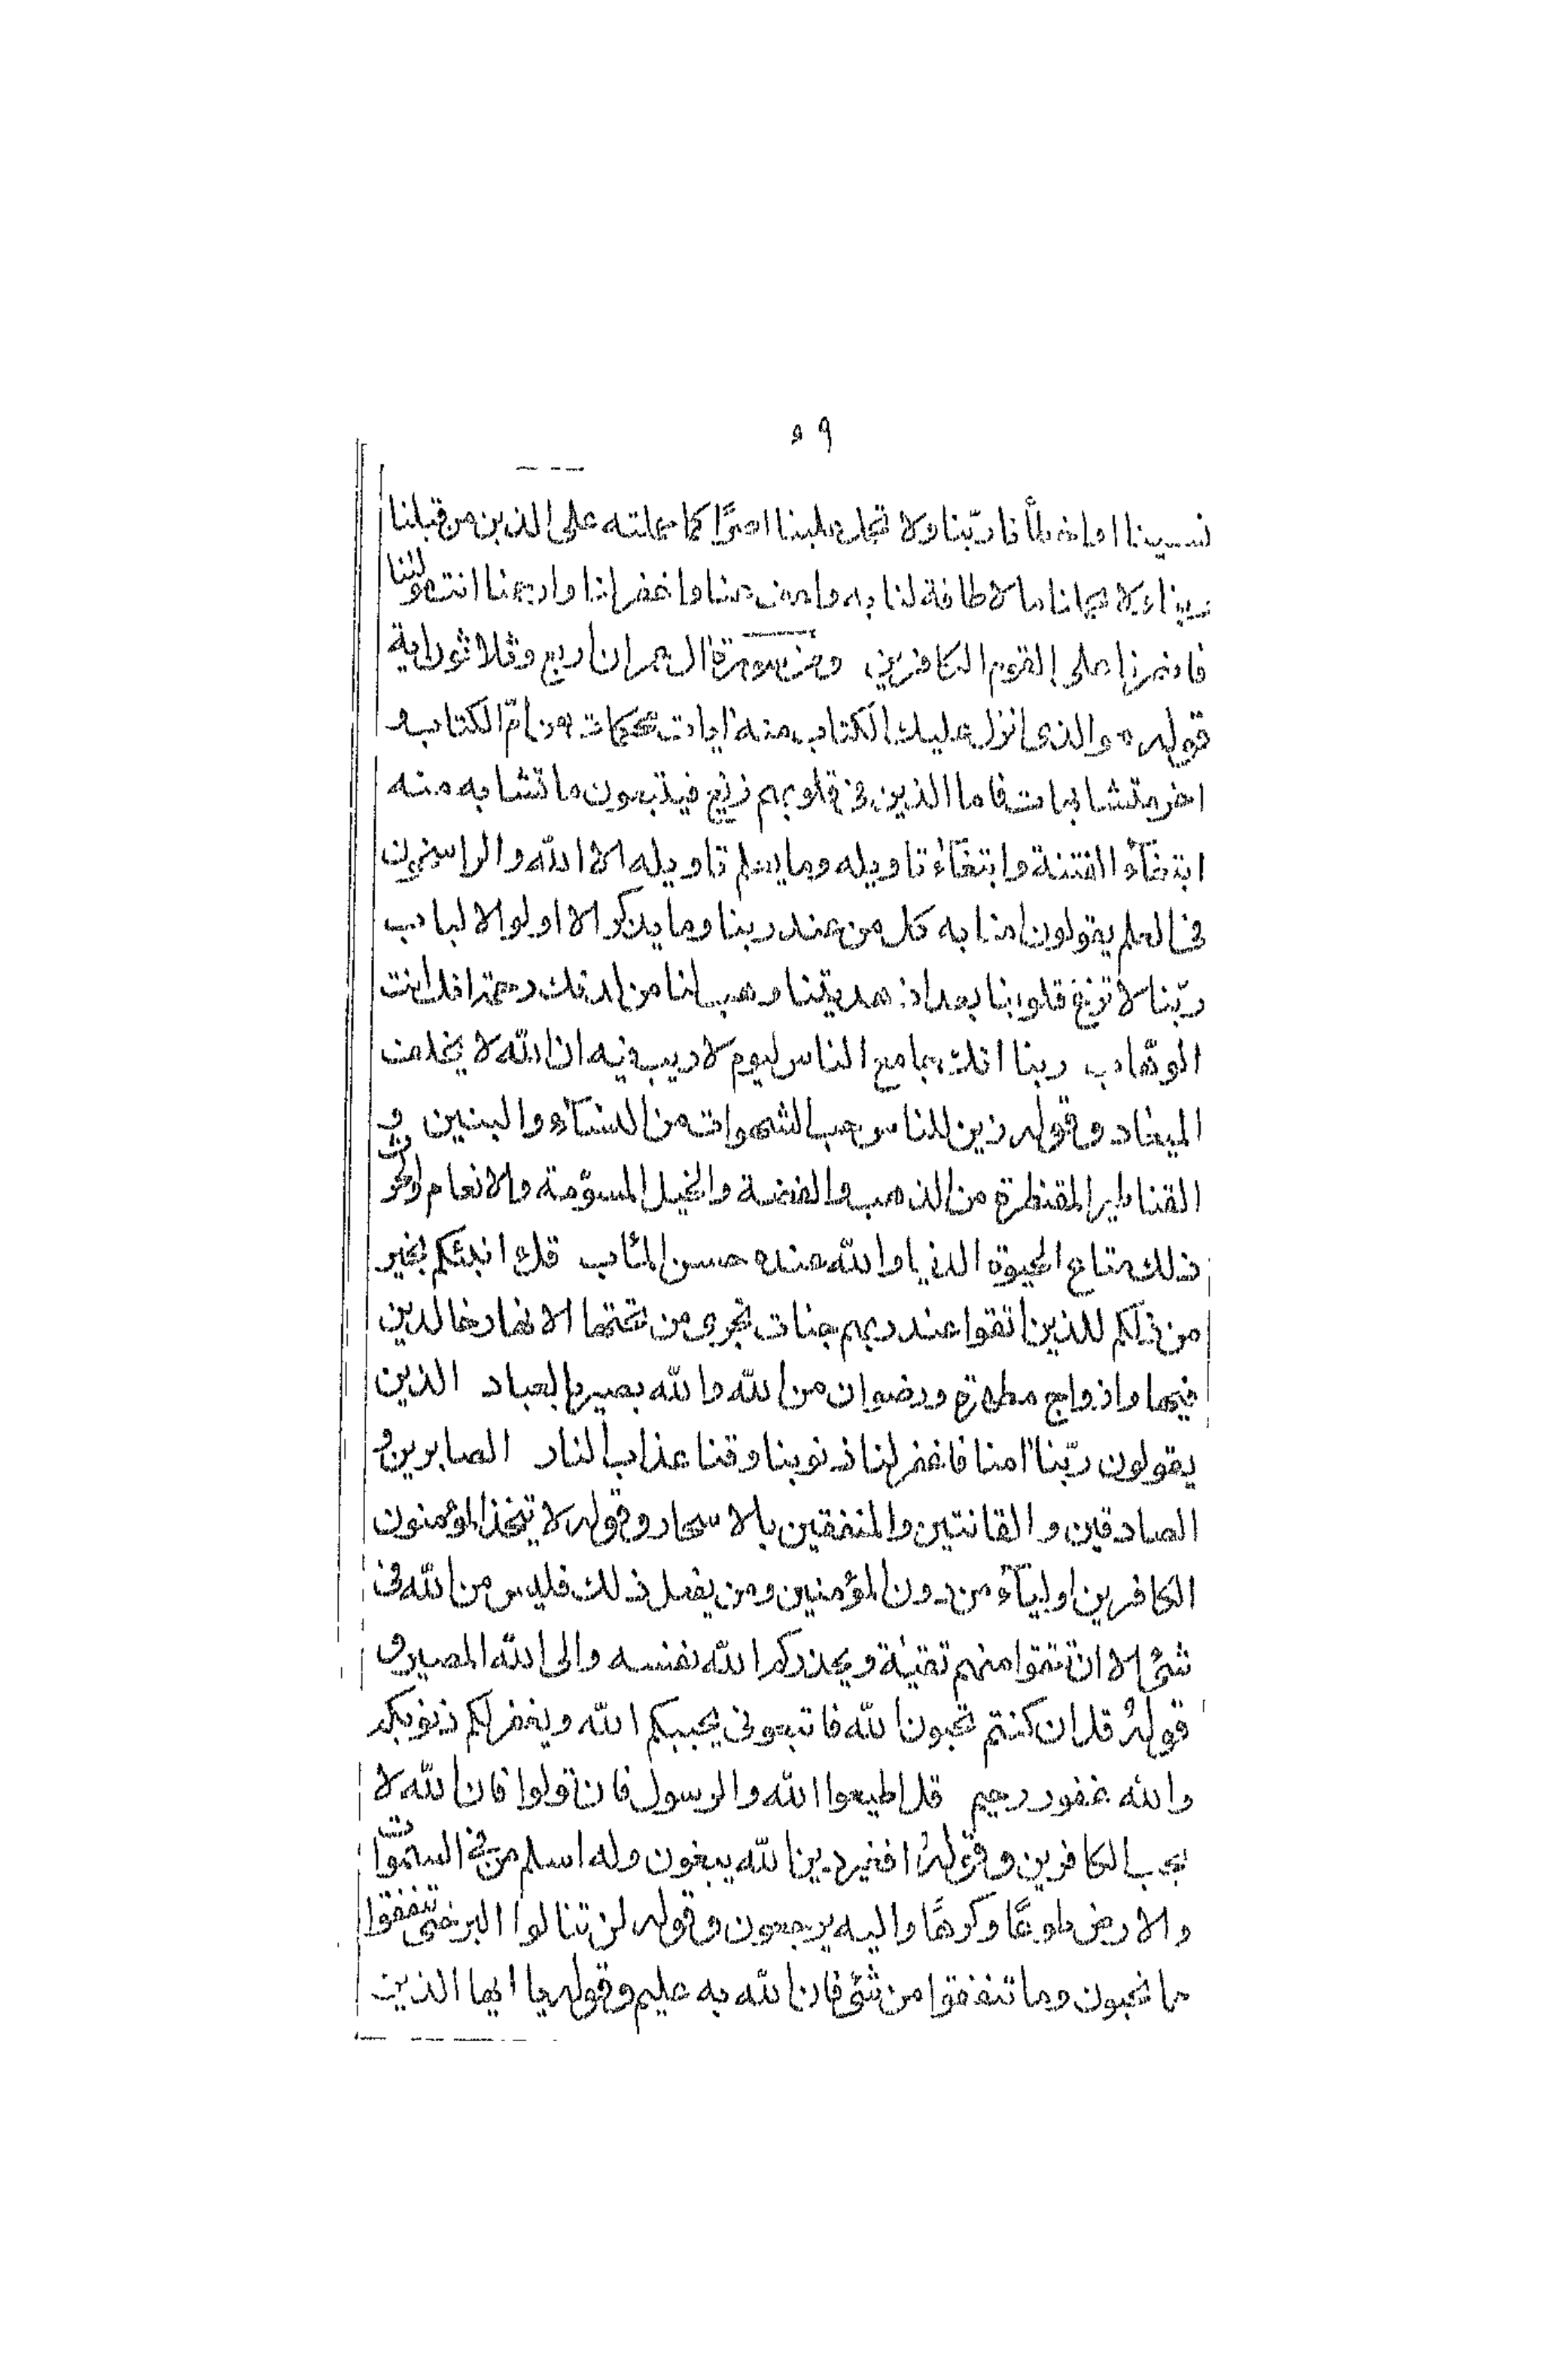 ٩ ٥
نسينا او اخطأنا ربّنا ولا تحمل علينا اصرًا كما حملته على الذين من قبلنا
ربنا ولا تحملنا ما لا طاقة لنا به واعف عنا واغفر لنا وارحمنا انت مولٰينا
فانصرنا على القوم الكافرين ومن سورة اٰل عمران اربع وثلاثون اية
قوله هو الذى انزل عليك الكتاب منه اٰيات محكمات هن امّ الكتاب و
اخر متشابهات فاما الذين فى قلوبهم زيغ فيتبعون ما تشابه منه
ابتغآء الفتنة وابتغآء تاويله وما يعلم تاويله الا الله والراسخون
فى العلم يقولون امنا به كل من عند ربنا وما يذكر الا اولوا الالباب
ربّنا لا تزغ قلوبنا بعد اذ هديتنا وهب لنا من لدنك رحمة انك انت
الوهّاب ربنا انك جامع الناس ليوم لا ريب فيه ان الله لا يخلف
الميعاد وقوله زين للناس حب الشهوات من النسآء والبنين و
القناطير المقنطرة من الذهب والفضة والخيل المسوّمة والانعام والحرث
ذلك متاع الحيوة الدنيا والله عنده حسن المئاب قل ءانبئكم بخير
من ذلكم للذين اتقوا عند ربهم جنات تجرى من تحتها الانهار خالدين
فيها وازواج مطهرة ورضوان من الله والله بصير بالعباد الذين
يقولون ربّنا اٰمنا فاغفر لنا ذنوبنا وقنا عذاب النار الصابرين و
الصادقين و القانتين والمنفقين بالاسحار وقوله لا يتخذ المؤمنون
الكافرين اوليآء من دون المؤمنين ومن يفعل ذلك فليس من الله فى
شئ الا ان تتقوا منهم تقيٰة ويحذركم الله نفسه والى الله المصير و
قولهُ قل ان كنتم تحبون الله فاتبعونى يحببكم الله ويغفر لكم ذنوبكم
والله غفور رحيم قل اطيعوا الله والرسول فان تولوا فان الله لا
يحب الكافرين وقولهُ افغير دين الله يبغون وله اسلم من فى السمٰوات
والارض طوعًا وكرهًا واليه يرجعون وقوله لن تنالوا البر حتى تنفقوا
مما تحبون وما تنفقوا من شئ فان الله به عليم وقوله يا ايها الذين